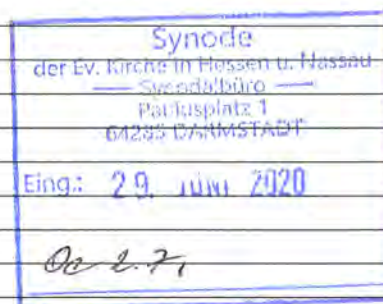 Synode
der Ev. Kirche in Hessen u. Nassau
— Synodalbüro —
Paulusplatz 1
64285 DARMSTADT
Eing.: 29. JUNI 2020
2.7.